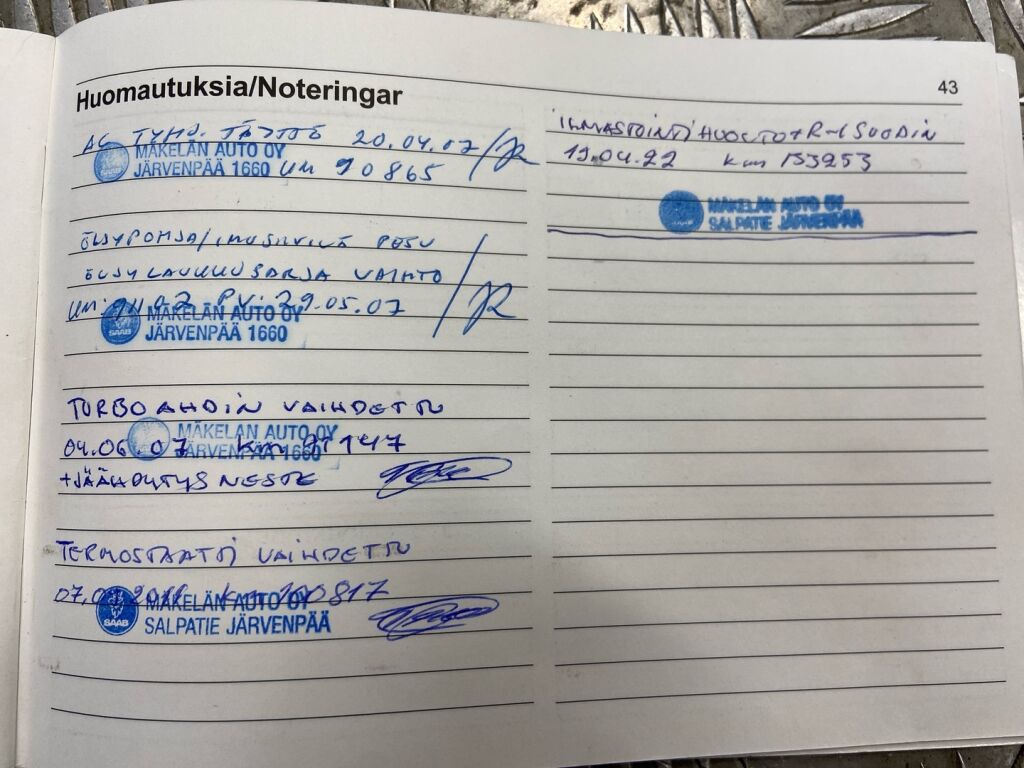 Huomautuksia/Noteringar
43
AC TYHJ. TÄYTTÖ 20.04.07
MÄKELÄN AUTO OY
JÄRVENPÄÄ 1660 KM 90865
ÖLJYPOHJA/IMUSIIVILÄ PESU
ÖLJYLAUHKUSARJA VAIHTO
KM: PV: 29.05.07
SAAB
MÄKELÄN AUTO OY
JÄRVENPÄÄ 1660
TURBOAHDIN VAIHDETTU
MÄKELÄN AUTO OY
04.06.07 km 91147
JÄRVENPÄÄ 1660
+JÄÄHDYTYSNESTE
TERMOSTAATTI VAIHDETTU
07. km 100817
SAAB
MÄKELÄN AUTO OY
SALPATIE JÄRVENPÄÄ
ILMASTOINTIHUOLTO+R-I SUODIN
19.04.22 km 153253
MÄKELÄN AUTO OY
SALPATIE JÄRVENPÄÄ